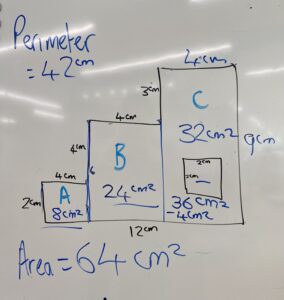 Perimeter
= 42cm
4cm
3cm
C
4cm
32cm²
9cm
4cm
B
6
2cm
2cm
4cm
A
24cm²
2cm
8cm²
36cm²
-4cm²
12cm
Area = 64cm²